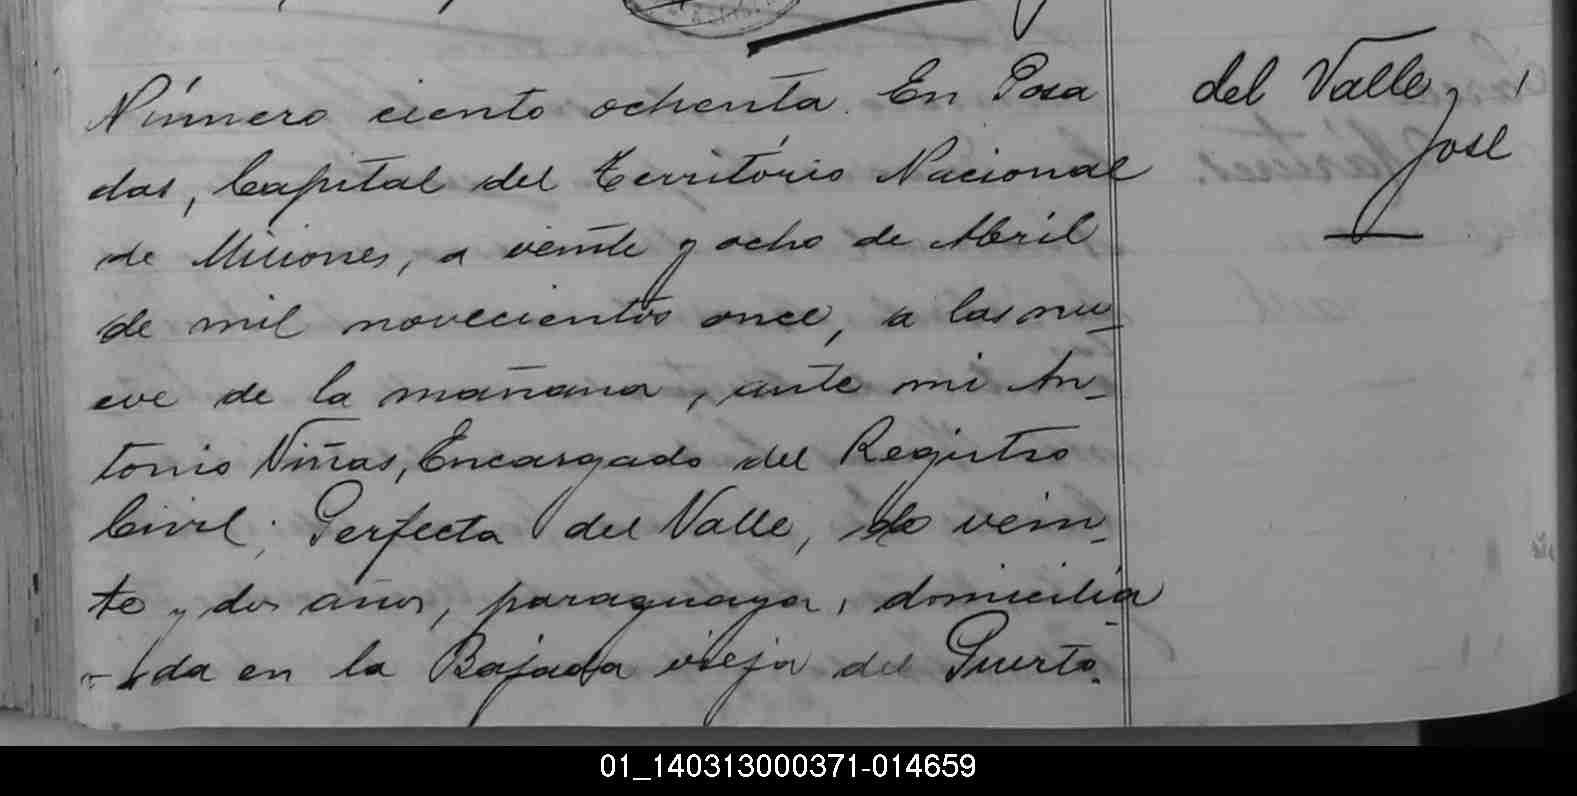 Número ciento ochenta. En Posa
das, Capital del Território Nacional
de Misiones, a veinte y ocho de Abril
de mil novecientos once, a las nu-
eve de la mañana, ante mi An-
tonio Viñas, Encargado del Registro
Civil; Perfecta del Valle, de vein-
te y dos años, paraguaya, domicilia-
da en la Bajada vieja del Puerto.
del Valle,
José
01_140313000371-014659